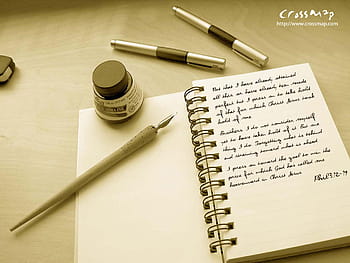 crossmap
http://www.crossmap.com
Not that I have already obtained
all this or have already been made
perfect but I press on to take hold
of that for which Christ Jesus took
hold of me
Brothers I do not consider myself
yet to have taken hold of it But one
thing I do Forgetting what is behind
and straining toward what is ahead
I press on toward the goal to win the
prize for which God has called me
heavenward in Christ Jesus
Phil 3:12-14